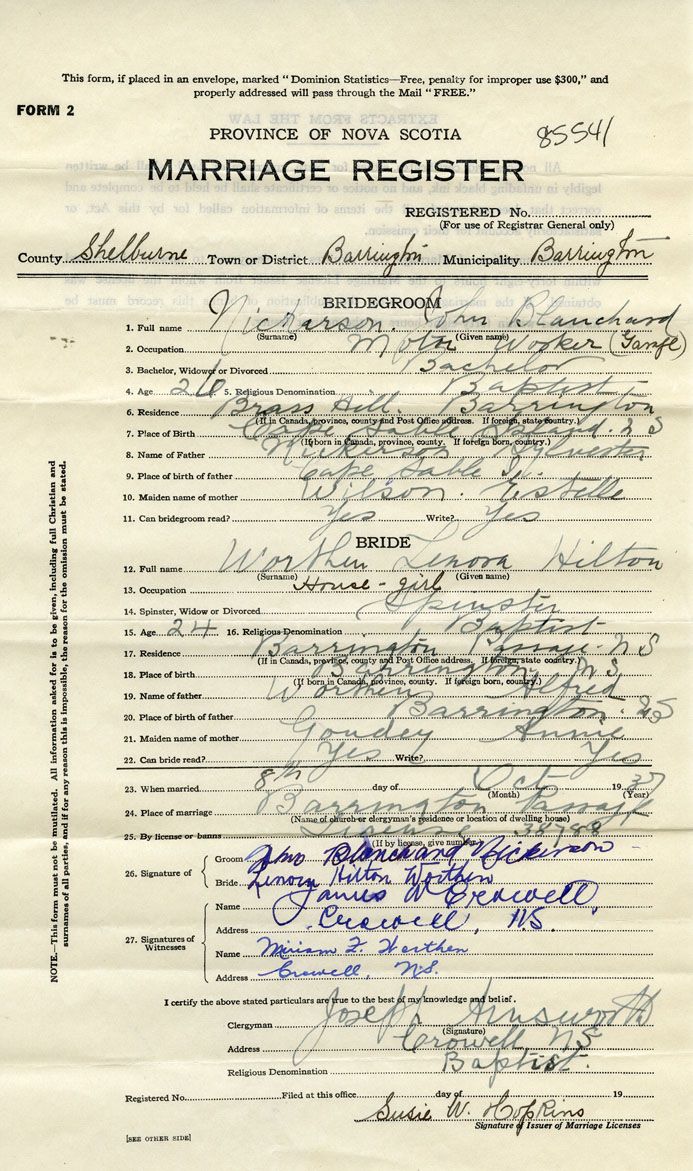 This form, if placed in an envelope, marked "Dominion Statistics—Free, penalty for improper use $300," and
properly addressed will pass through the Mail "FREE."
FORM 2
PROVINCE OF NOVA SCOTIA
85541
MARRIAGE REGISTER
REGISTERED No.
(For use of Registrar General only)
County Shelburne Town or District Barrington Municipality Barrington
BRIDEGROOM
1. Full name Nickerson. John Blanchard
(Surname) (Given name)
2. Occupation Motor Worker (Garage)
3. Bachelor, Widower or Divorced Bachelor
4. Age 26 5. Religious Denomination Baptist
6. Residence Brass Hill. Barrington
(If in Canada, province, county and Post Office address. If foreign, state country.)
7. Place of Birth Cape Sable Island. N S
(If born in Canada, province, county. If foreign born, country.)
8. Name of Father Nickerson Sylvester
9. Place of birth of father Cape Sable Is.
10. Maiden name of mother Wilson. Estelle
11. Can bridegroom read? Yes Write? Yes
BRIDE
12. Full name Worthen Lenora Hilton
(Surname) (Given name)
13. Occupation House-girl
14. Spinster, Widow or Divorced Spinster
15. Age 24 16. Religious Denomination Baptist
17. Residence Barrington Passage. N S
(If in Canada, province, county and Post Office address. If foreign, state country.)
18. Place of birth Barrington. N S
(If born in Canada, province, county. If foreign born, country.)
19. Name of father Worthen Alfred
20. Place of birth of father Barrington. NS
21. Maiden name of mother Goudey Annie
22. Can bride read? Yes Write? Yes
23. When married 8th day of Oct 1937
(Month) (Year)
24. Place of marriage Barrington Passage
(Name of church or clergyman's residence or location of dwelling house)
25. By license or banns License 38788
(If by license, give number)
26. Signature of Groom John Blanchard Nickerson
Bride Lenora Hilton Worthen
27. Signatures of Witnesses Name James W Crowell
Address Crowell, N.S.
Name Miriam F. Worthen
Address Crowell, N.S.
I certify the above stated particulars are true to the best of my knowledge and belief.
Clergyman Joseph Ainsworth
(Signature)
Address Crowell NS
Religious Denomination Baptist.
Registered No. Filed at this office day of 19
Susie W. Hopkins
Signature of Issuer of Marriage Licenses
[SEE OTHER SIDE]
NOTE.—This form must not be mutilated. All information asked for is to be given, including full Christian and
surnames of all parties, and if for any reason this is impossible, the reason for the omission must be stated.